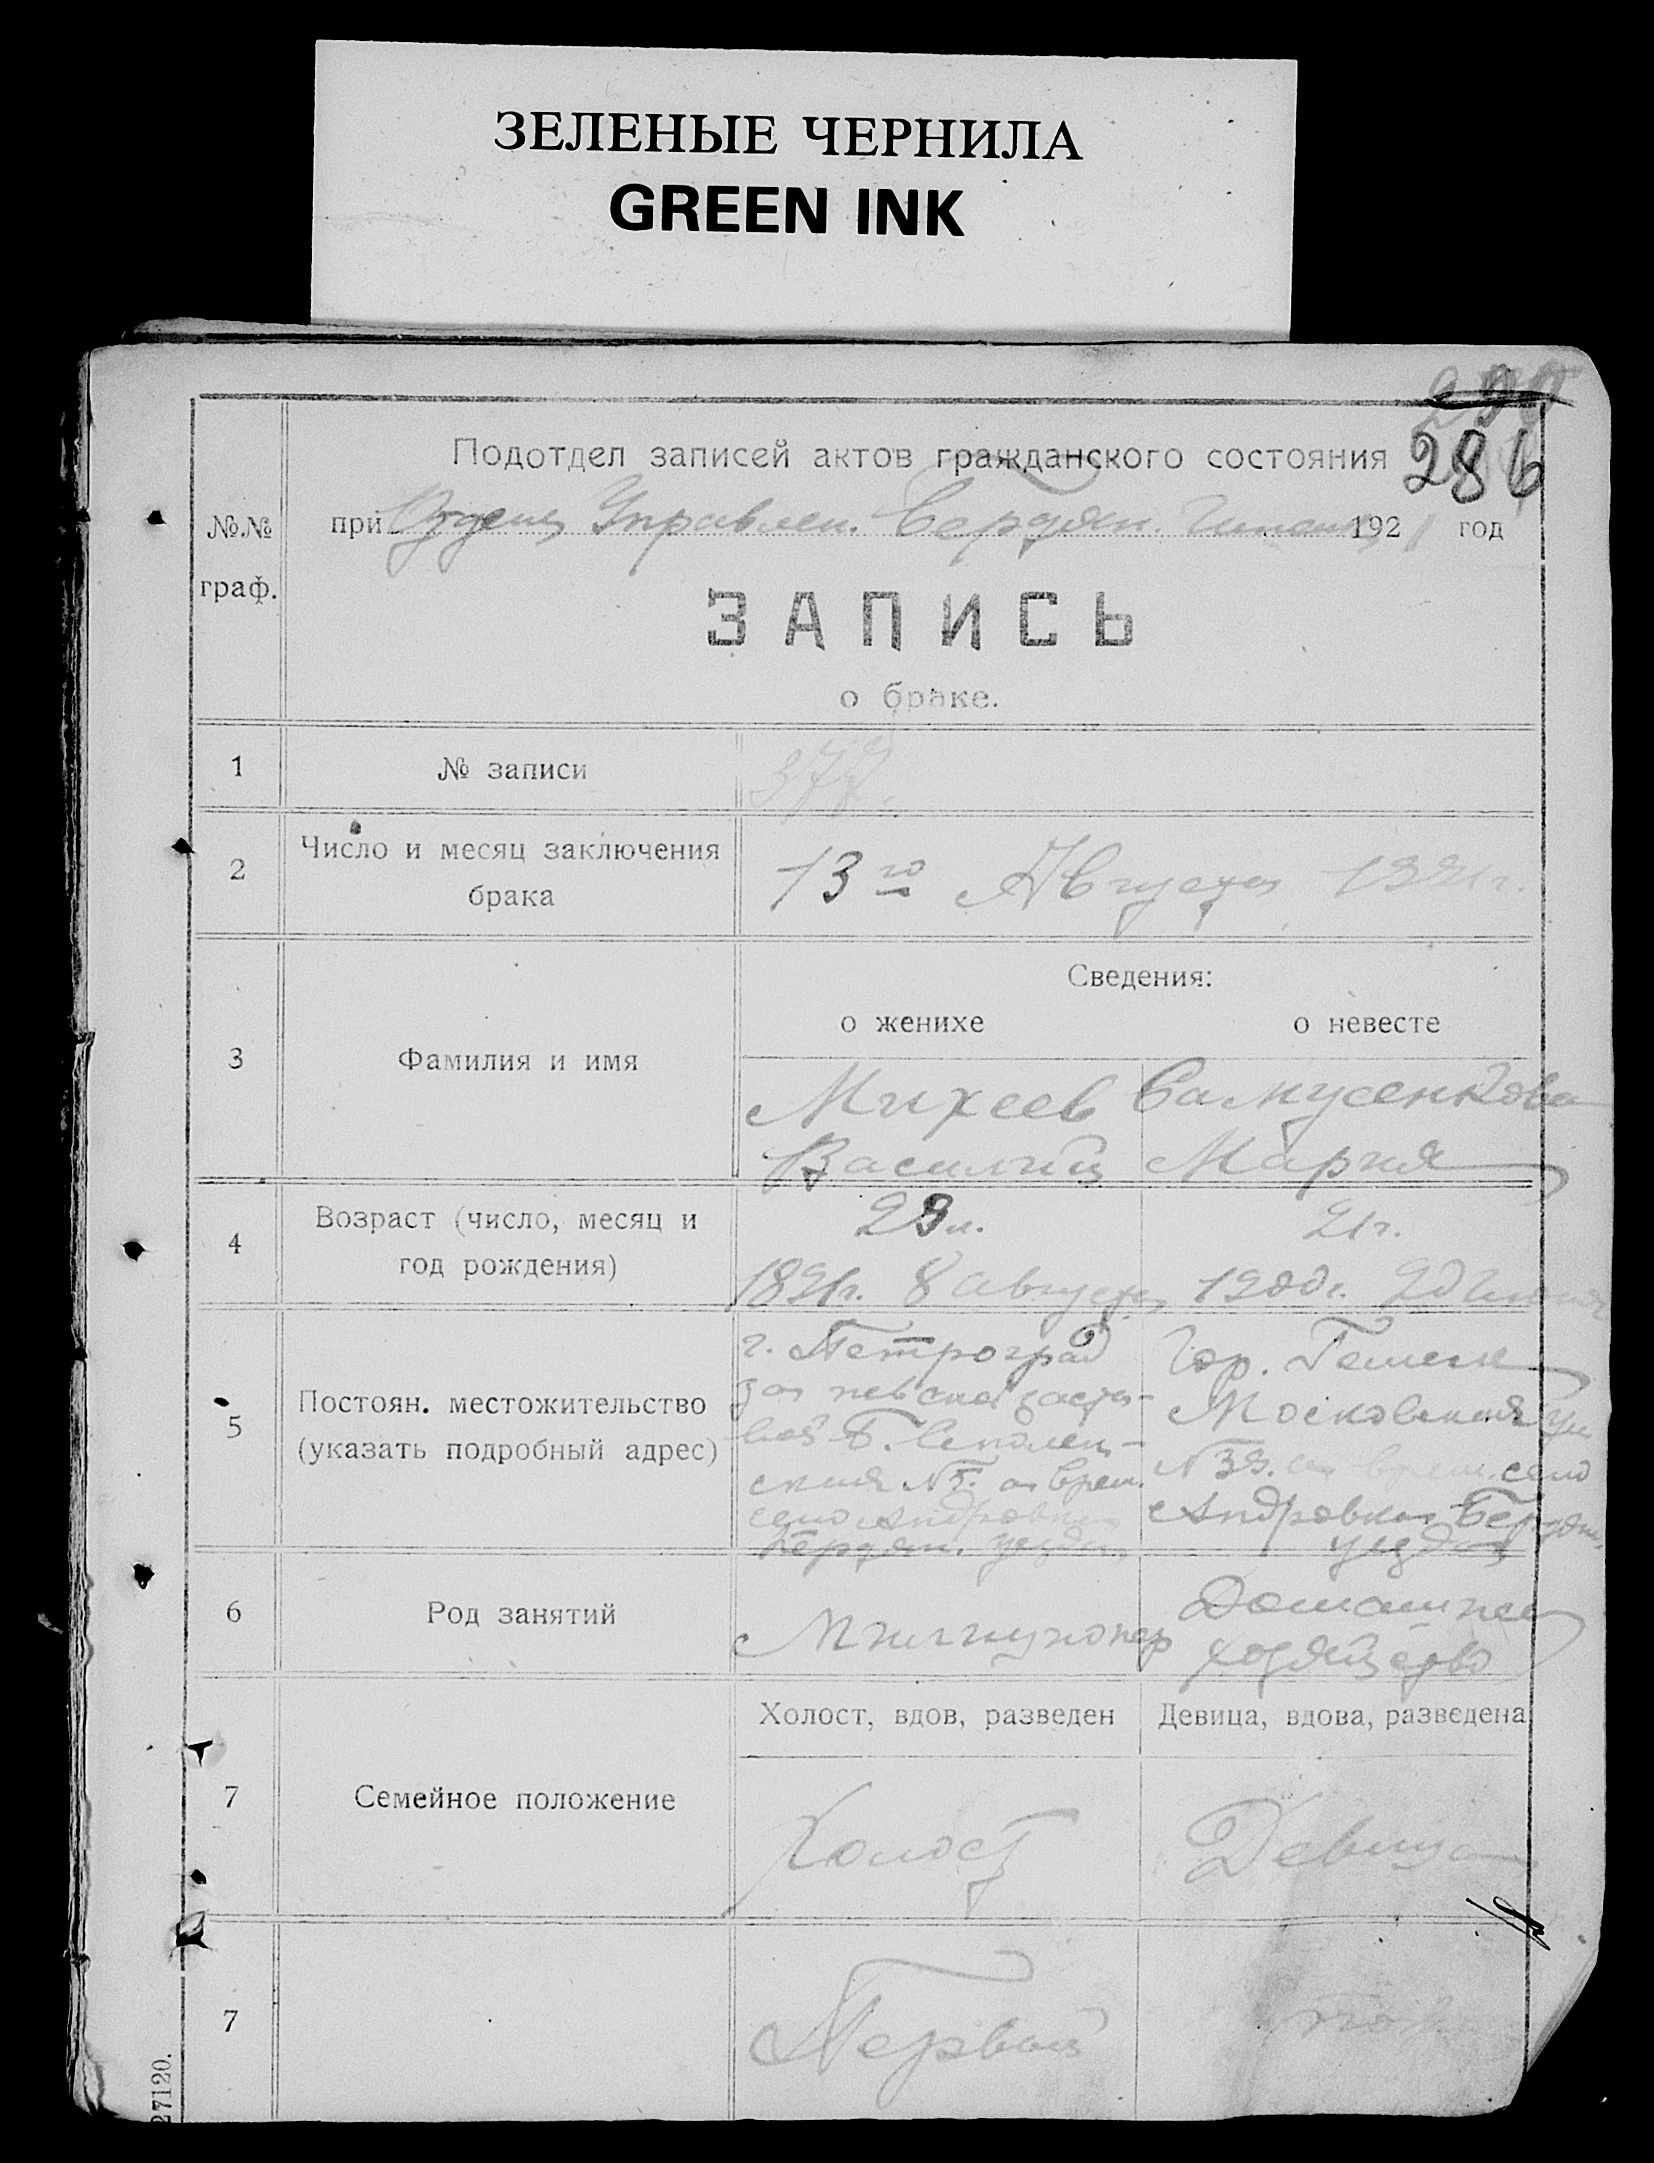 ЗЕЛЕНЫЕ ЧЕРНИЛА
GREEN INK
286
Подотдел записей актов гражданского состояния
№№ граф.
при Отделе Управлен. Бердян. 192 1 год
ЗАПИСЬ
о браке.
1 № записи 377.
2 Число и месяц заключения брака
13го Августа 1921 г.
Сведения:
о женихе о невесте
3 Фамилия и имя
Михеев Самусенкова
Василий Мария
4 Возраст (число, месяц и год рождения)
29 л. 21 г.
8 августа 1900 г.
5 Постоян. местожительство (указать подробный адрес)
г. Петроград Гор.
за невской заста- Московская ул
вой Б. Смолен- село
ская №5. а врем. Андровка Бердян.
село Андровка уезда
Бердян. уезда
6 Род занятий
Милиционер Домашнее
хозяйство
Холост, вдов, разведен Девица, вдова, разведена
7 Семейное положение
Холост Девица
7 Первый
27120.